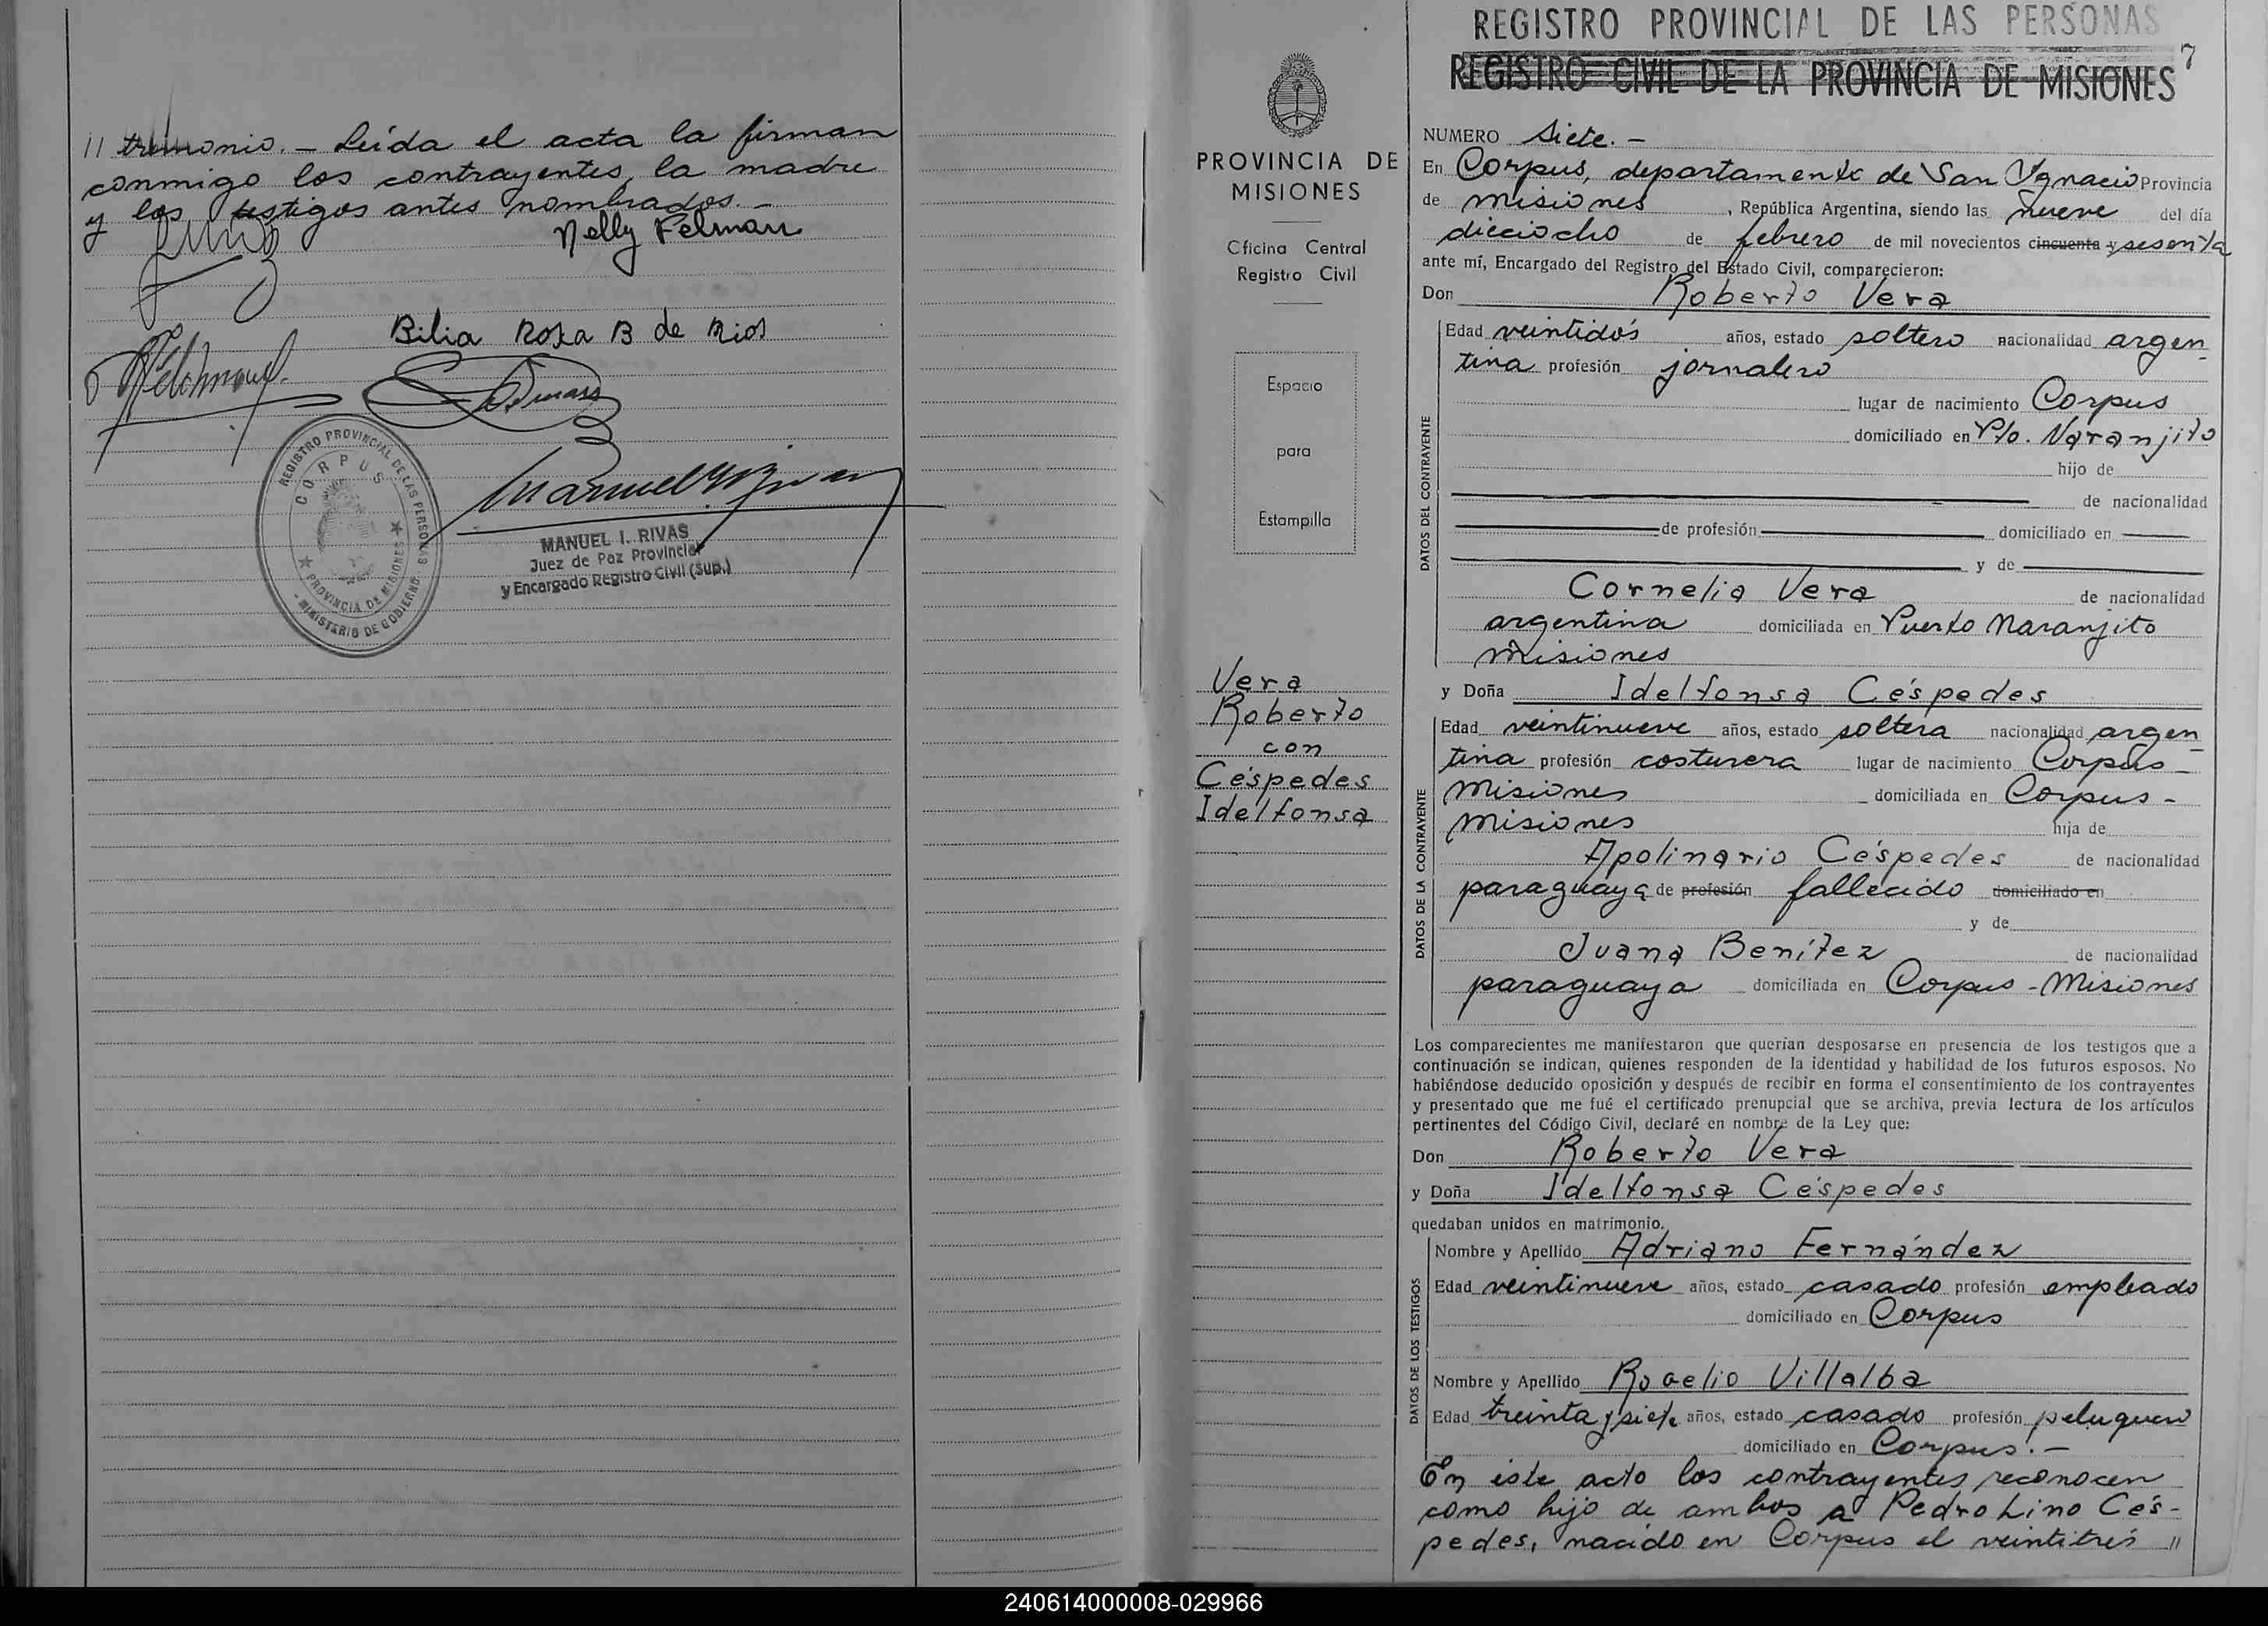 // trimonio. — Leída el acta la firman
conmigo los contrayentes, la madre
y los testigos antes nombrados. —
Nelly Felman
Bilia Rosa B de Rios
REGISTRO PROVINCIAL DE LAS PERSONAS
CORPUS
PROVINCIA DE MISIONES
- MINISTERIO DE GOBIERNO -
MANUEL I. RIVAS
Juez de Paz Provincial
y Encargado Registro Civil (Sup.)
PROVINCIA DE
MISIONES
Oficina Central
Registro Civil
Espacio
para
Estampilla
Vera
Roberto
con
Céspedes
Idelfonsa
REGISTRO PROVINCIAL DE LAS PERSONAS
REGISTRO CIVIL DE LA PROVINCIA DE MISIONES
7
NUMERO Siete. —
En Corpus, departamento de San Ygnacio Provincia
de Misiones, República Argentina, siendo las nueve del día
dieciocho de febrero de mil novecientos cincuenta y sesenta
ante mí, Encargado del Registro del Estado Civil, comparecieron:
Don Roberto Vera
DATOS DEL CONTRAYENTE
Edad veintidós años, estado soltero nacionalidad argen-
tina profesión jornalero
lugar de nacimiento Corpus
domiciliado en Pto. Naranjito
hijo de
de nacionalidad
de profesión domiciliado en
y de
Cornelia Vera de nacionalidad
argentina domiciliada en Puerto Naranjito
Misiones
y Doña Idelfonsa Céspedes
DATOS DE LA CONTRAYENTE
Edad veintinueve años, estado soltera nacionalidad argen-
tina profesión costurera lugar de nacimiento Corpus -
Misiones domiciliada en Corpus -
Misiones hija de
Apolinario Céspedes de nacionalidad
paraguaya de profesión fallecido domiciliado en
y de
Juana Benítez de nacionalidad
paraguaya domiciliada en Corpus - Misiones
Los comparecientes me manifestaron que querían desposarse en presencia de los testigos que a
continuación se indican, quienes responden de la identidad y habilidad de los futuros esposos. No
habiéndose deducido oposición y después de recibir en forma el consentimiento de los contrayentes
y presentado que me fué el certificado prenupcial que se archiva, previa lectura de los artículos
pertinentes del Código Civil, declaré en nombre de la Ley que:
Don Roberto Vera
y Doña Idelfonsa Céspedes
quedaban unidos en matrimonio.
DATOS DE LOS TESTIGOS
Nombre y Apellido Adriano Fernández
Edad veintinueve años, estado casado profesión empleado
domiciliado en Corpus
Nombre y Apellido Rogelio Villalba
Edad treinta y siete años, estado casado profesión peluquero
domiciliado en Corpus. —
En este acto los contrayentes reconocen
como hijo de ambos a Pedro Lino Cés-
pedes, nacido en Corpus el veintitrés //
240614000008-029966